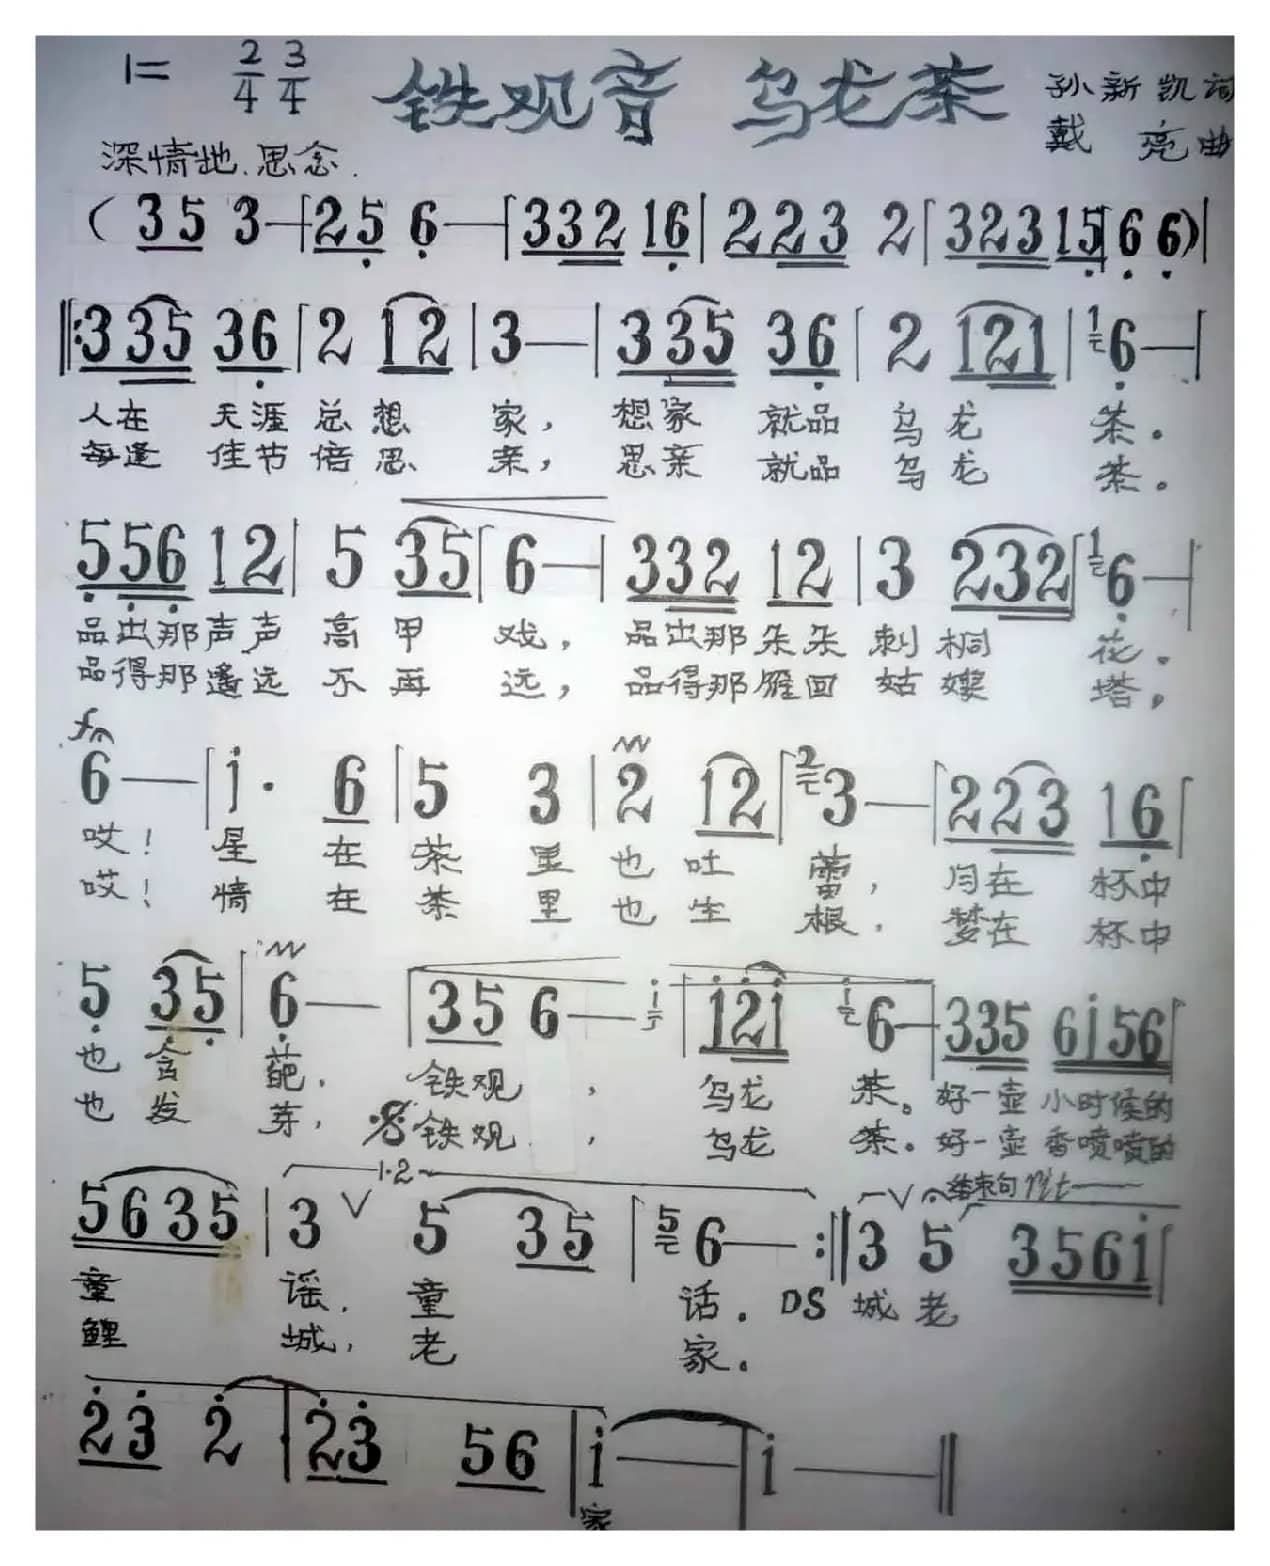 1= 2/4 3/4 铁观音 乌龙茶 孙新凯 词
深情地.思念. 戴亮 曲
( 35 3— | 25 6— | 332 16 | 223 2 | 323 15 | 6 6 ) |
‖: 335 36 | 2 12 | 3— | 335 36 | 2 121 | 1 6— |
人在 天涯 总 想 家, 想家 就品 乌 龙 茶.
每逢 佳节 倍 思 亲, 思亲 就品 乌 龙 茶.
556 12 | 5 35 | 6— | 332 12 | 3 232 | 1 6— |
品出那声声 高 甲 戏, 品出那朵朵 刺 桐 花.
品得那遥远 不 再 远, 品得那雁回 姑 嫂 塔,
6— | i· 6 | 5 3 | 2 12 | 2 3— | 223 16 |
哎! 星 在 茶 里 也 吐 蕾, 月在 杯中
哎! 情 在 茶 里 也 生 根. 梦在 杯中
5 35 | 6— | 35 6— i | i2i i 6— | 335 6i56 |
也 含 葩. 铁观 , 乌龙 茶. 好一壶 小时候的
也 发 芽, 铁观 , 乌龙 茶. 好一壶 香喷喷的
1·2 结束句 rit
5635 | 3 V 5 35 | 5 6— :‖ 3 5 356i |
童 谣. 童 话. DS 城 老
鲤 城, 老 家.
23 2 | 23 56 | i— | i— ‖
家